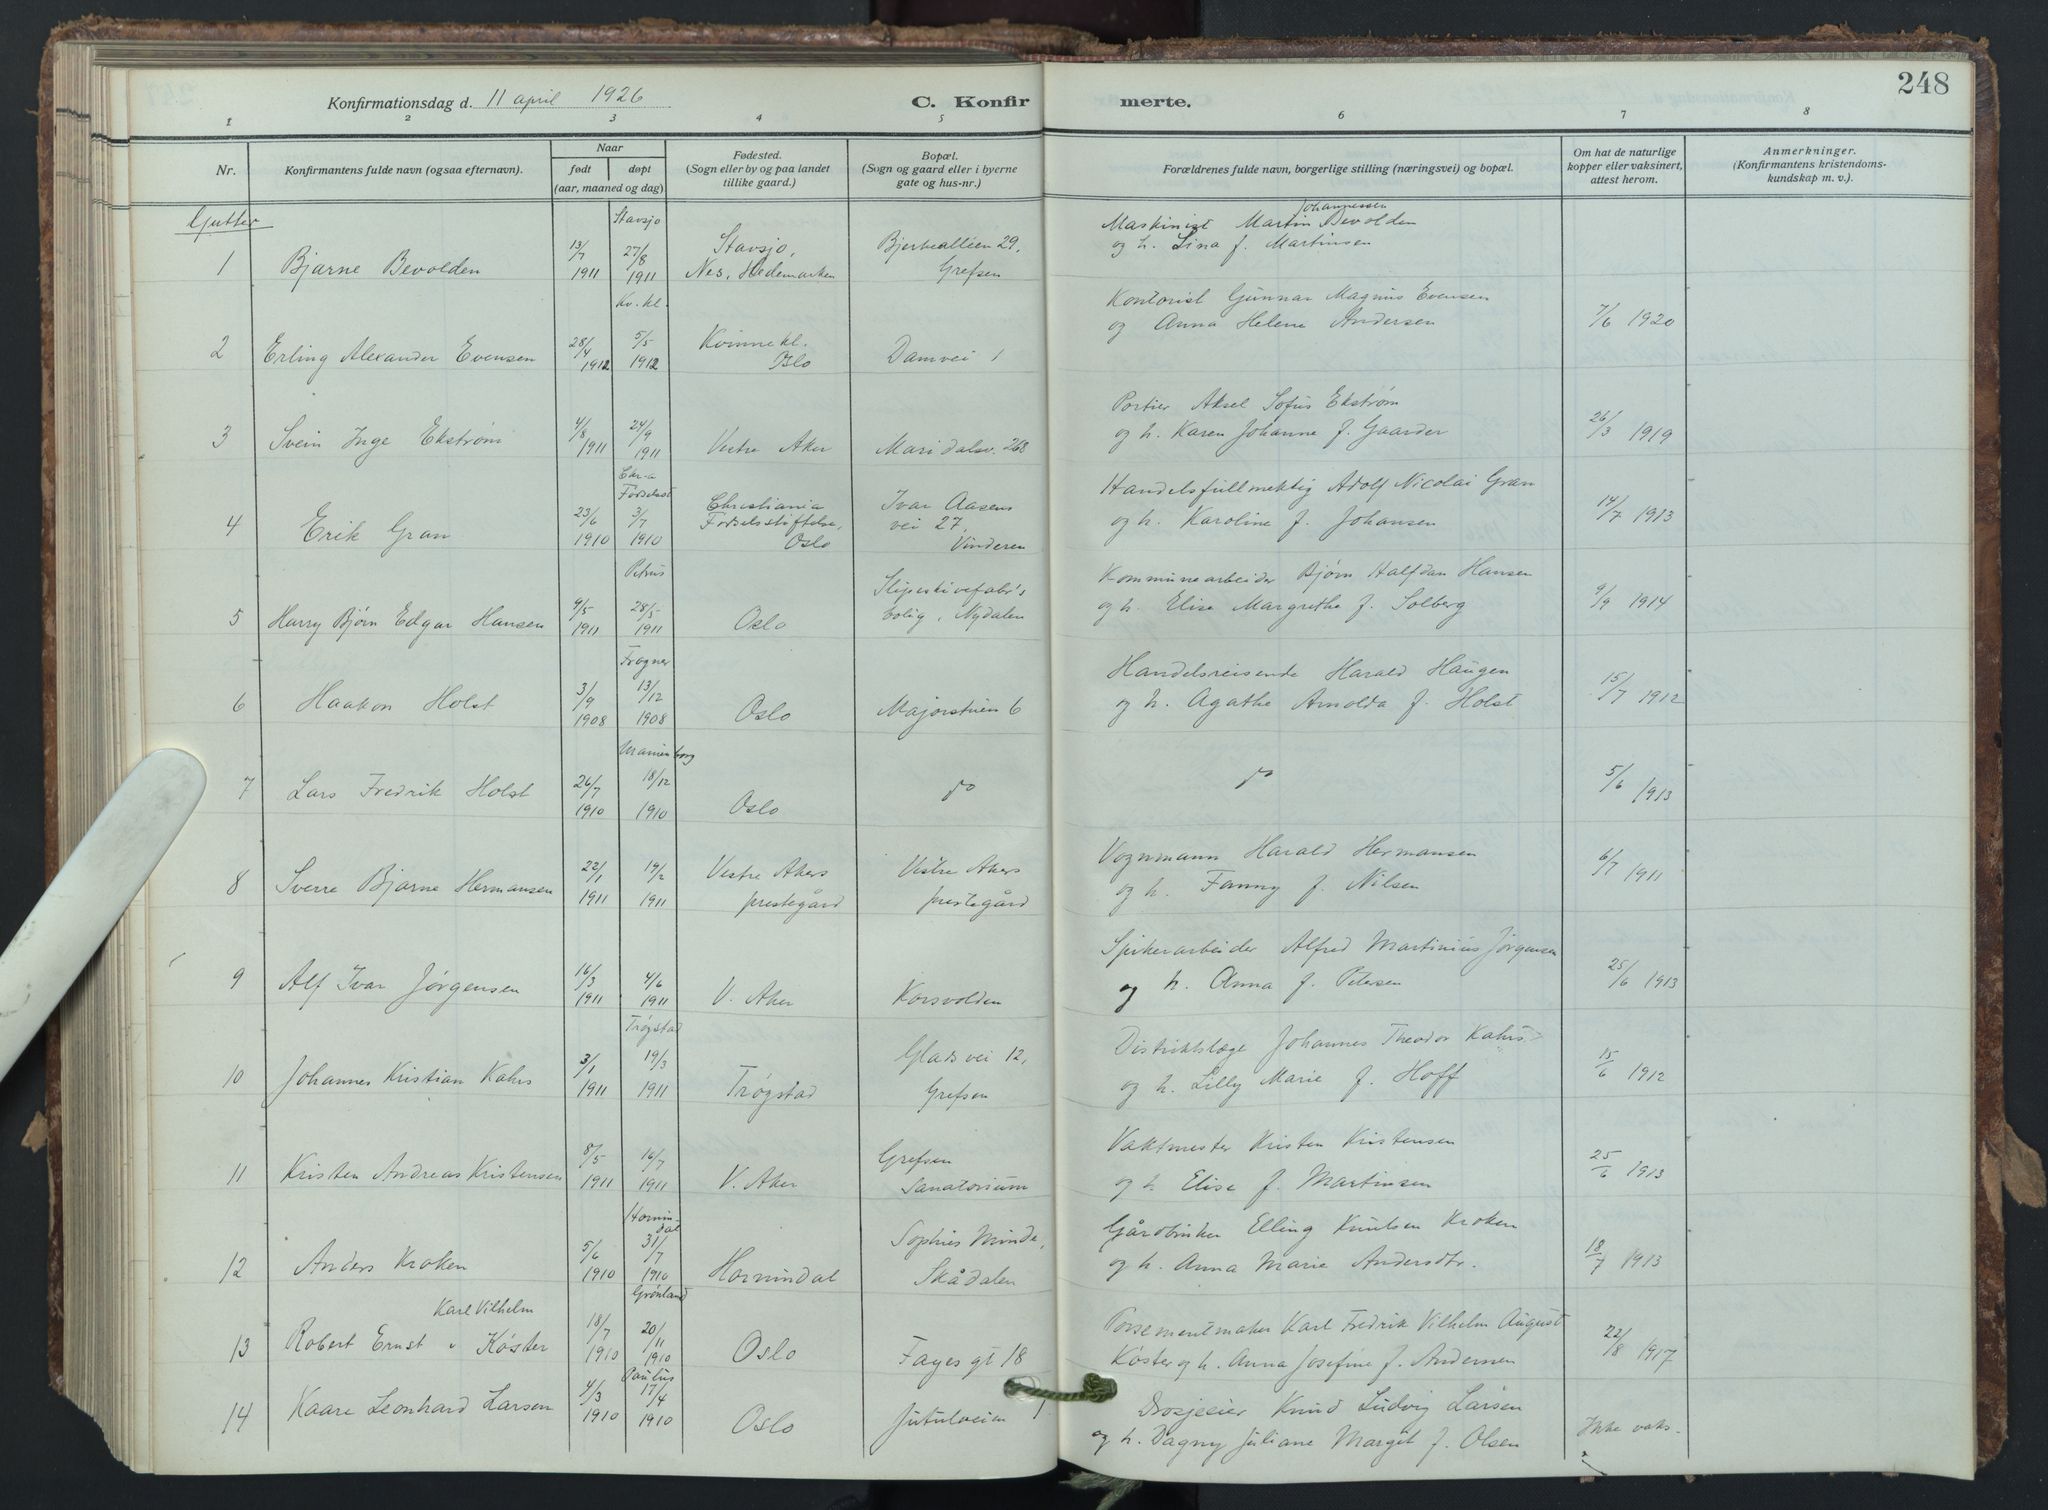 248
Konfirmationsdag d. 11 april 1926
C. Konfirmerte.
1 2 3 4 5 6 7 8
Nr.
Konfirmantens fulde navn (ogsaa efternavn).
Naar
født
døpt
(aar, maaned og dag)
Fødested.
(Sogn eller by og paa landet
tillike gaard.)
Bopæl.
(Sogn og gaard eller i byerne
gate og hus-nr.)
Forældrenes fulde navn, borgerlige stilling (næringsvei) og bopæl.
Om hat de naturlige
kopper eller vaksinert,
attest herom.
Anmerkninger.
(Konfirmantens kristendoms-
kundskap m. v.).
Gutter
1 Bjarne Bevolden
13/7 1911
Stavsjø 27/8 1911
Stavsjø,
Nes, Hedemarken
Bjerkealléen 29.
Grefsen
Maskinist Martin Johannessen Bevolden
og h. Lina f. Martinsen
2 Erling Alexander Evensen
28/4 1912
Kv. kl. 5/5 1912
Kvinnekl.
Oslo
Damvei 1
Kontorist Gunnar Magnus Evensen
og Anna Helene Andersen
7/6 1920
3 Svein Inge Ekstrøm
4/8 1911
24/9 1911
Vestre Aker
Maridalsv. 268
Portier Aksel Sofus Ekstrøm
og h. Karen Johanne f. Gaarder
26/3 1919
4 Erik Gran
23/6 1910
Chr-a Fødselsst 3/7 1910
Christiania
Fødselsstiftelse,
Oslo
Ivar Aasens
vei 27,
Vinderen
Handelsfullmektig Adolf Nicolai Gran
og h. Karoline f. Johansen
14/7 1913
5 Harry Bjørn Edgar Hansen
9/5 1911
Petrus 28/5 1911
Oslo
Slipeskivefabr's
bolig, Nydalen
Kommunearbeider Bjørn Halfdan Hansen
og h. Elise Margrethe f. Solberg
9/9 1914
6 Haakon Holst
3/9 1908
Frogner 13/12 1908
Oslo
Majorstuen 6
Handelsreisende Harald Haugen
og h. Agathe Arnolda f. Holst
15/7 1912
7 Lars Fredrik Holst
26/7 1910
Uranienborg 18/12 1910
Oslo
do
do
5/6 1913
8 Sverre Bjarne Hermansen
22/1 1911
19/2 1911
Vestre Akers
prestegård
Vestre Akers
prestegård
Vognmann Harald Hermansen
og h. Fanny f. Nilsen
6/7 1911
9 Alf Ivar Jørgensen
16/3 1911
4/6 1911
V. Aker
Korsvolden
Spikerarbeider Alfred Martinius Jørgensen
og h. Anna f. Petersen
25/6 1913
10 Johannes Kristian Kahrs
3/1 1911
Trøgstad 19/3 1911
Trøgstad
Glads vei 12,
Grefsen
Distriktslæge Johannes Theodor Kahrs
og h. Lilly Marie f. Hoff
15/6 1912
11 Kristen Andreas Kristensen
8/5 1911
16/7 1911
V. Aker
Grefsen
Sanatorium
Vaktmester Kristen Kristensen
og h Elise f. Martinsen
25/6 1913
12 Anders Kroken
5/6 1910
Hornindal 31/7 1910
Hornindal
Sophies Minde,
Skådalen
Gårdbruker Elling Knutsen Kroken
og h. Anna Marie Andersdtr.
18/7 1913
Karl Vilhelm
13 Robert Ernst v Køster
18/7 1910
Grønland 20/11 1910
Oslo
Fayes gt 18
Possementmaker Karl Fredrik Vilhelm August
Køster og h. Anna Josefine f. Andersen
22/8 1917
14 Kaare Leonhard Larsen
4/3 1910
Paulus 17/4 1910
Oslo
Jutulveien
Drosjeeier Knud Ludvig Larsen
og h. Dagny Juliane Margit f. Olsen
Ikke vaks.